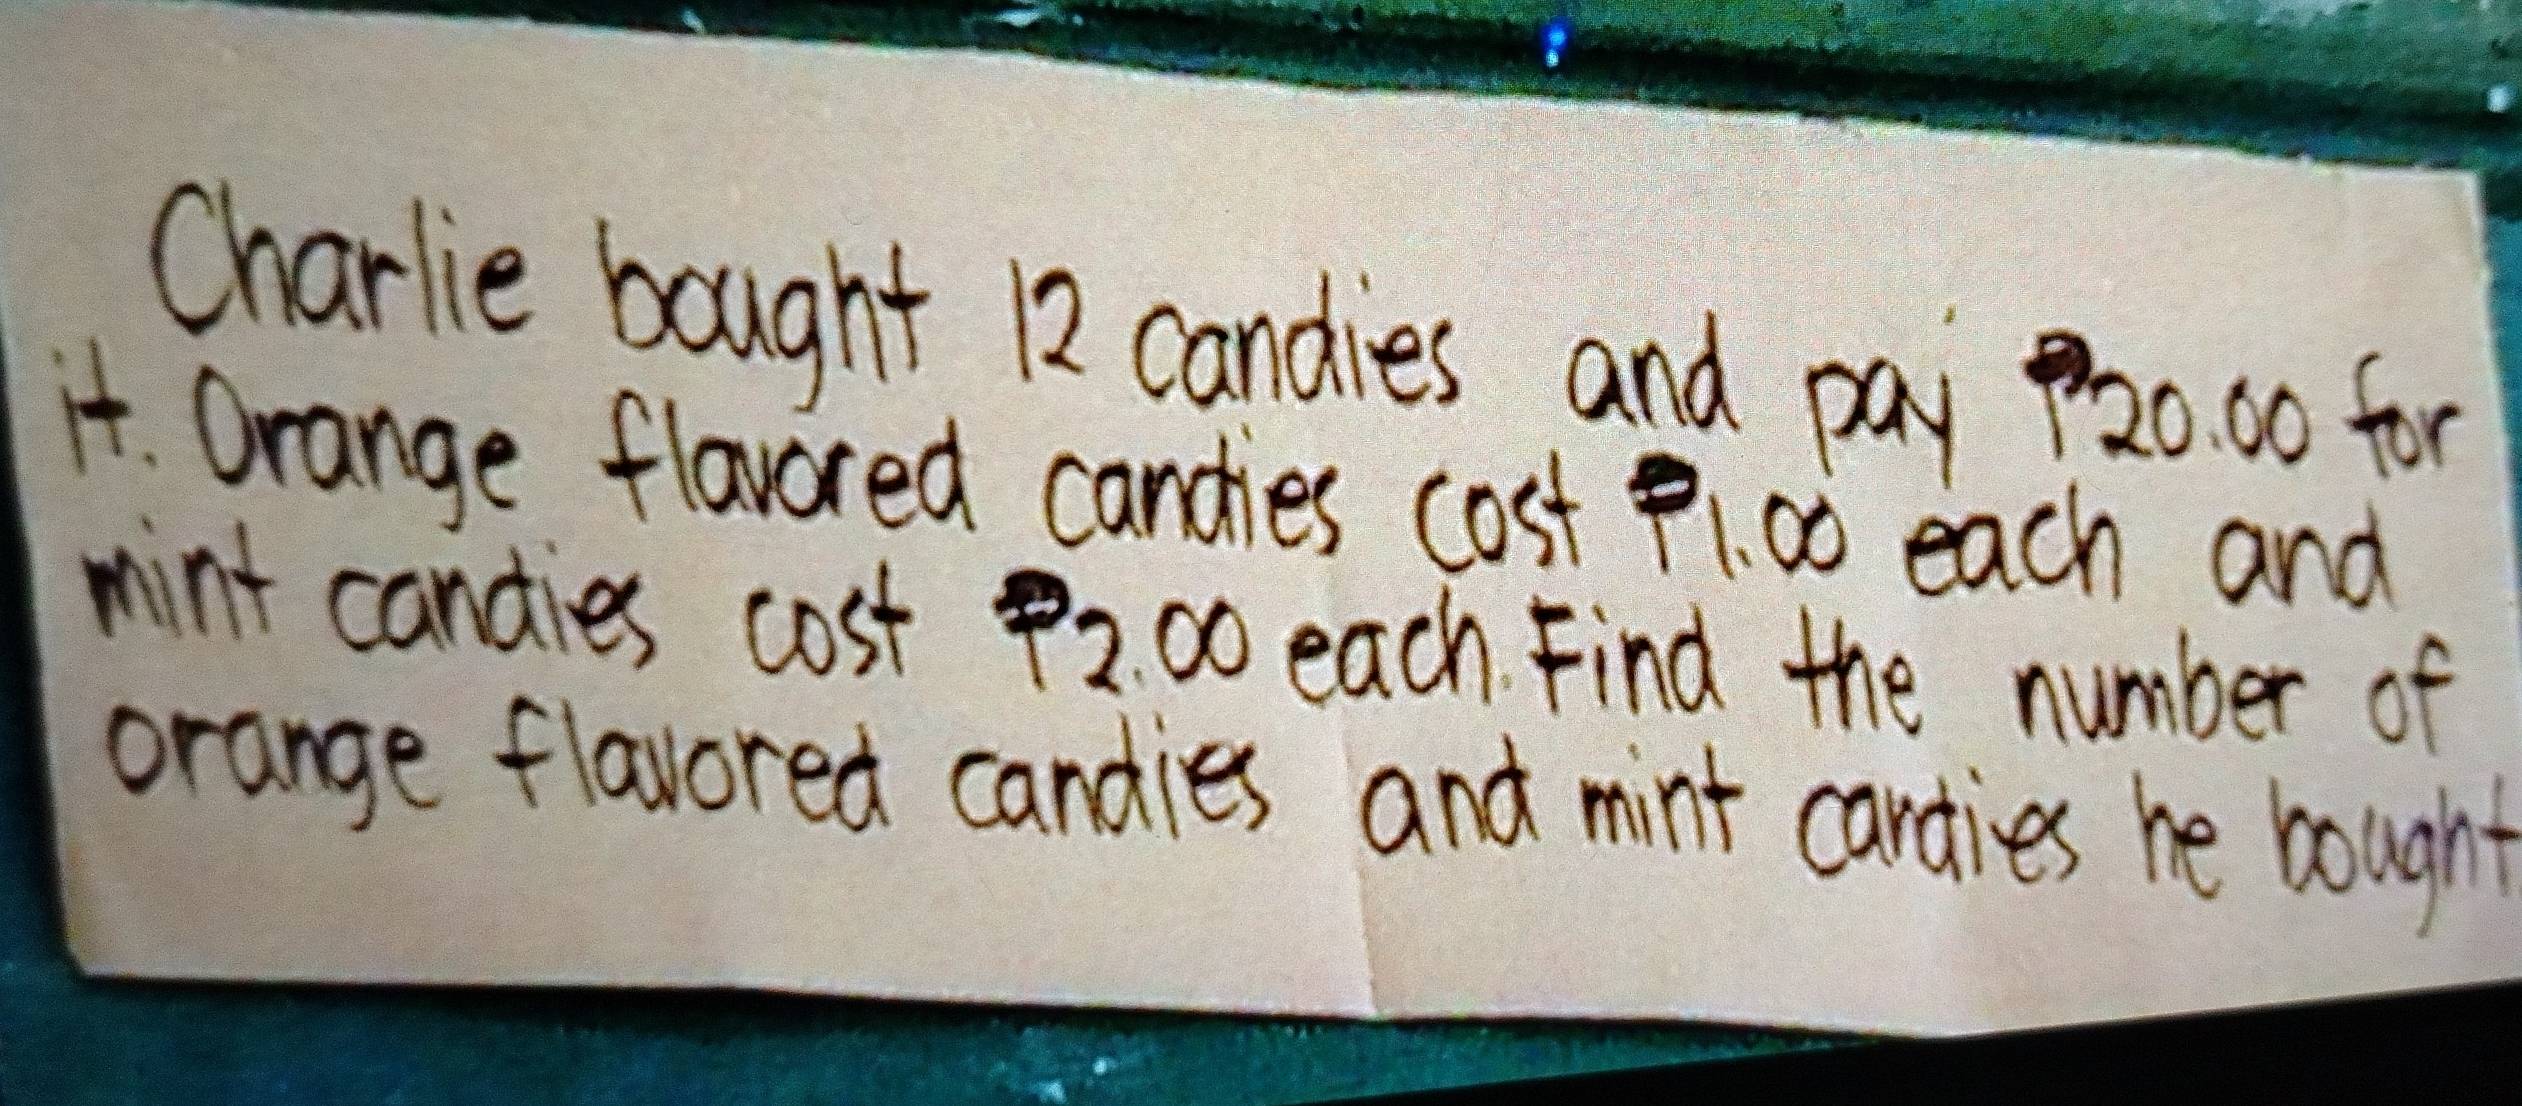 Charlie bought 12 candies and pay ₱20.00 for
it. Orange flavored candies cost ₱1.00 each and
mint candies cost ₱2.00 each. Find the number of
orange flavored candies and mint candies he bought.